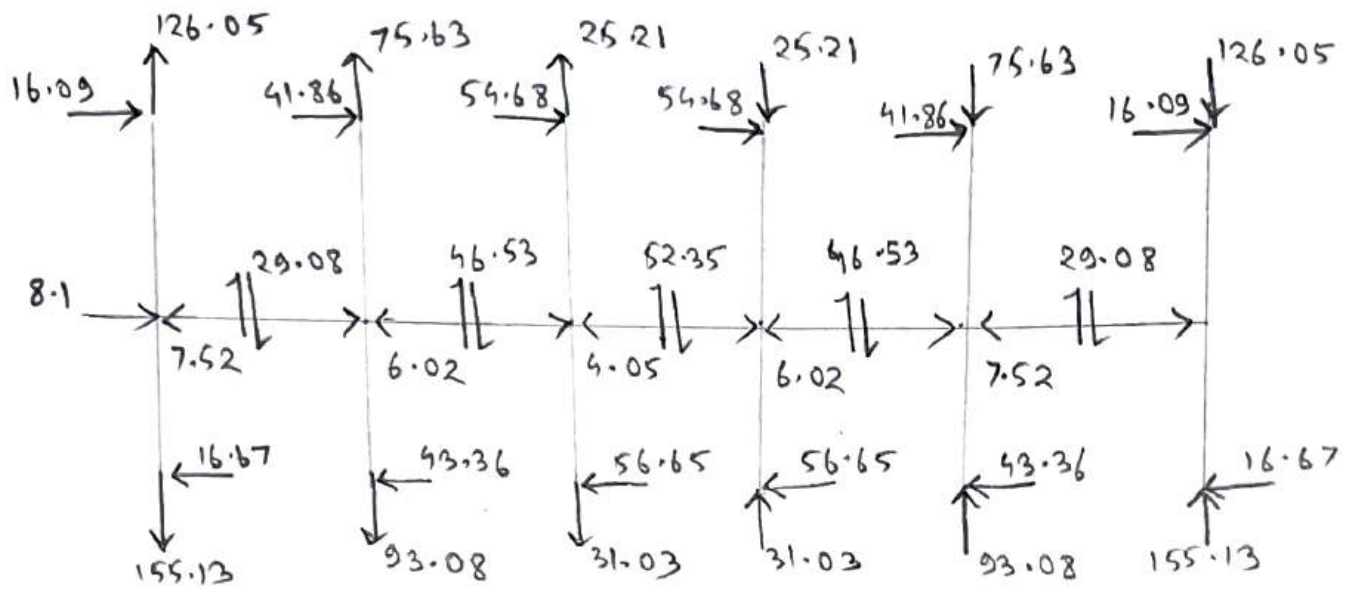 126.05 75.63 25.21 25.21 75.63 126.05
16.09 41.86 54.68 54.68 41.86 16.09
29.08 46.53 52.35 46.53 29.08
8.1
7.52 6.02 4.05 6.02 7.52
16.67 43.36 56.65 56.65 43.36 16.67
155.13 93.08 31.03 31.03 93.08 155.13